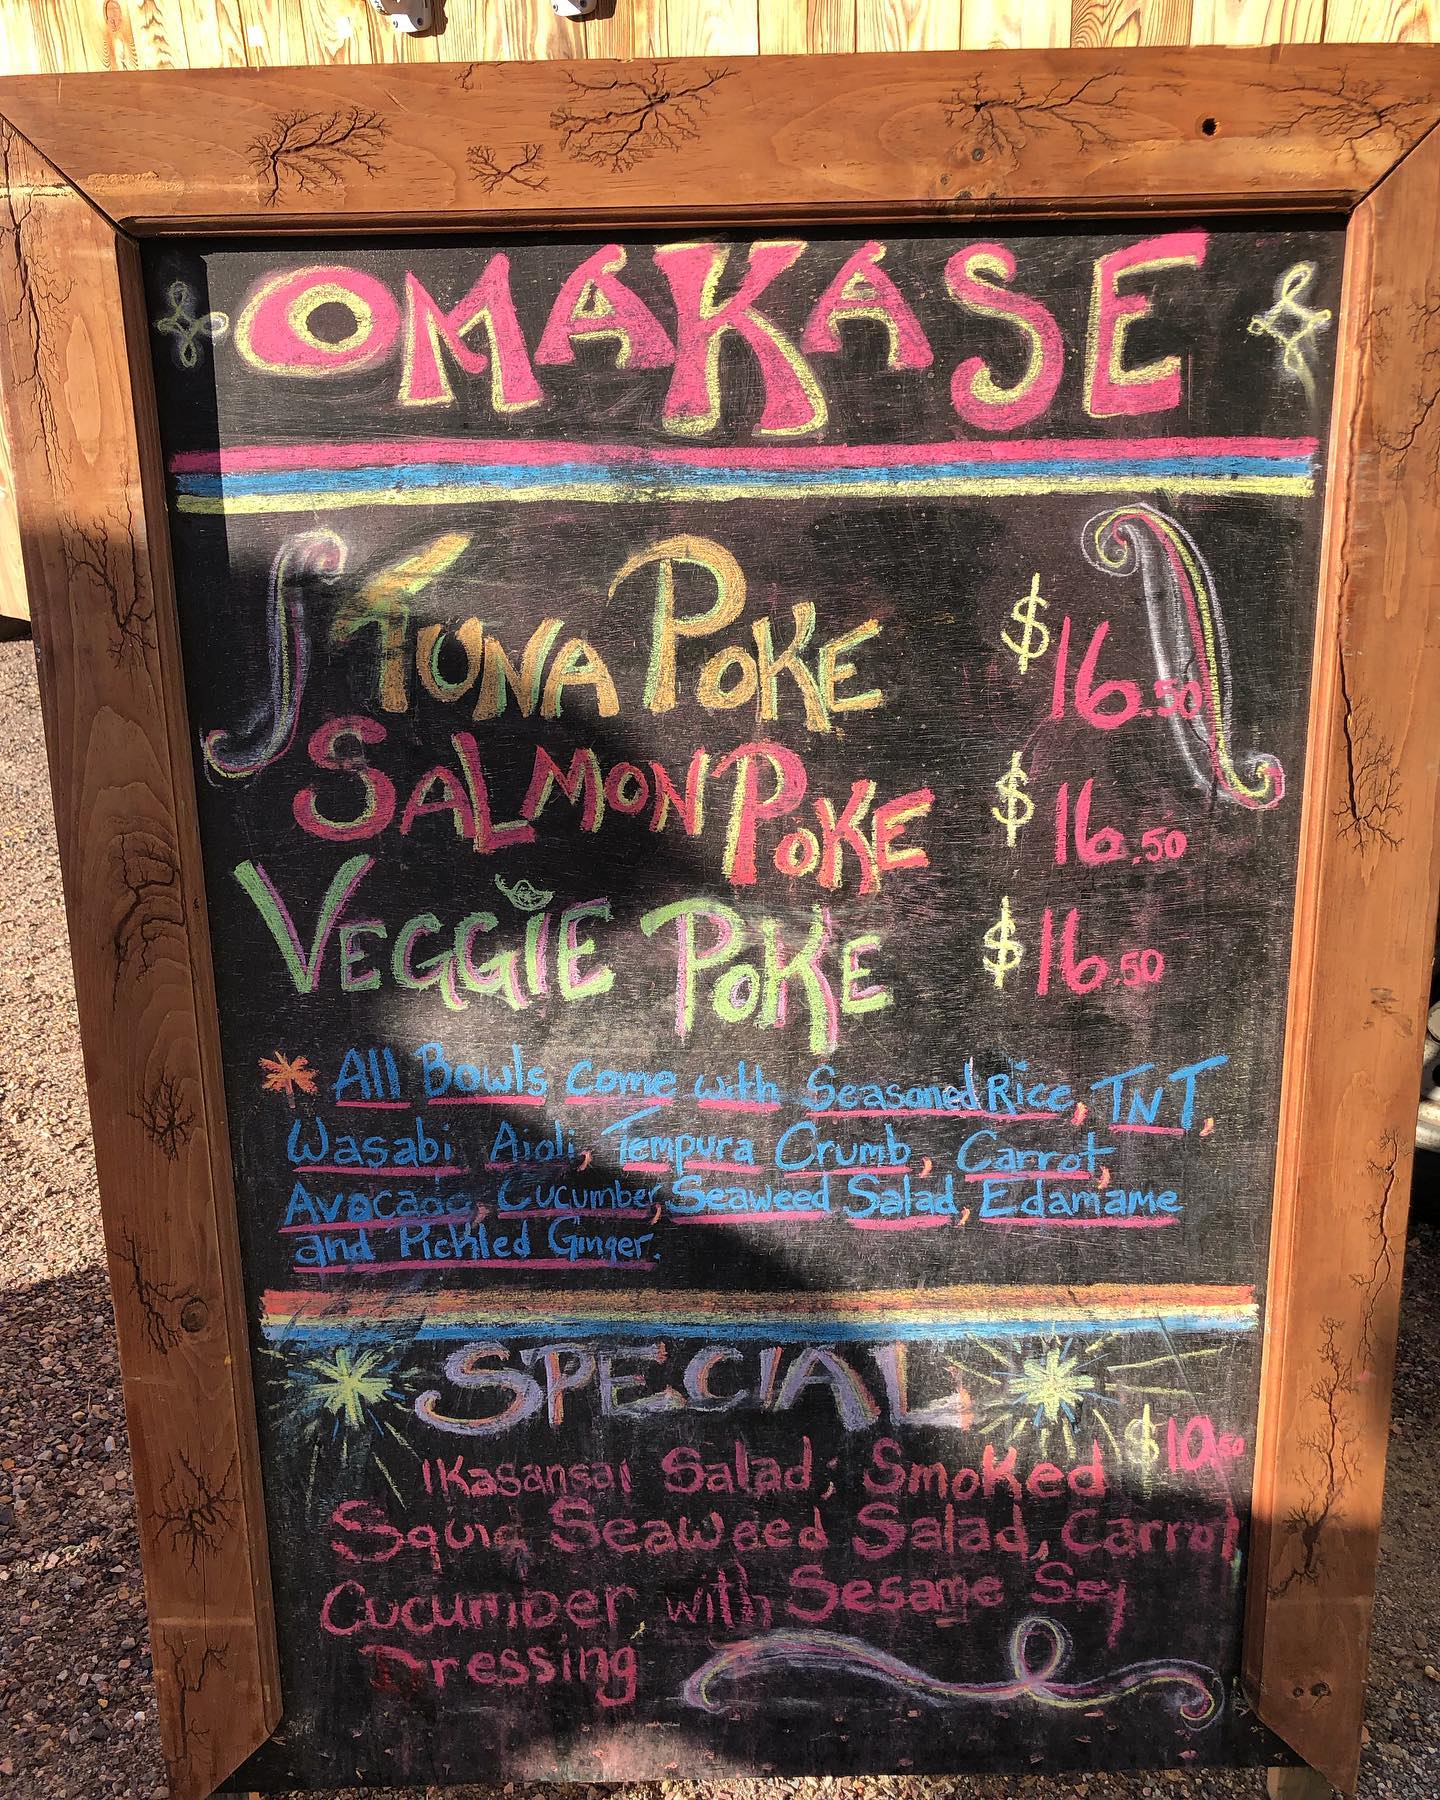 OMAKASE
TUNA POKE $16.50
SALMON POKE $16.50
VEGGIE POKE $16.50
All Bowls come with Seasoned Rice, TNT,
Wasabi Aioli, Tempura Crumb, Carrot,
Avocado, Cucumber, Seaweed Salad, Edamame
and Pickled Ginger.
SPECIAL
$10.50
IKasansai Salad; Smoked
Squid Seaweed Salad, Carrot
Cucumber with Sesame Soy
Dressing